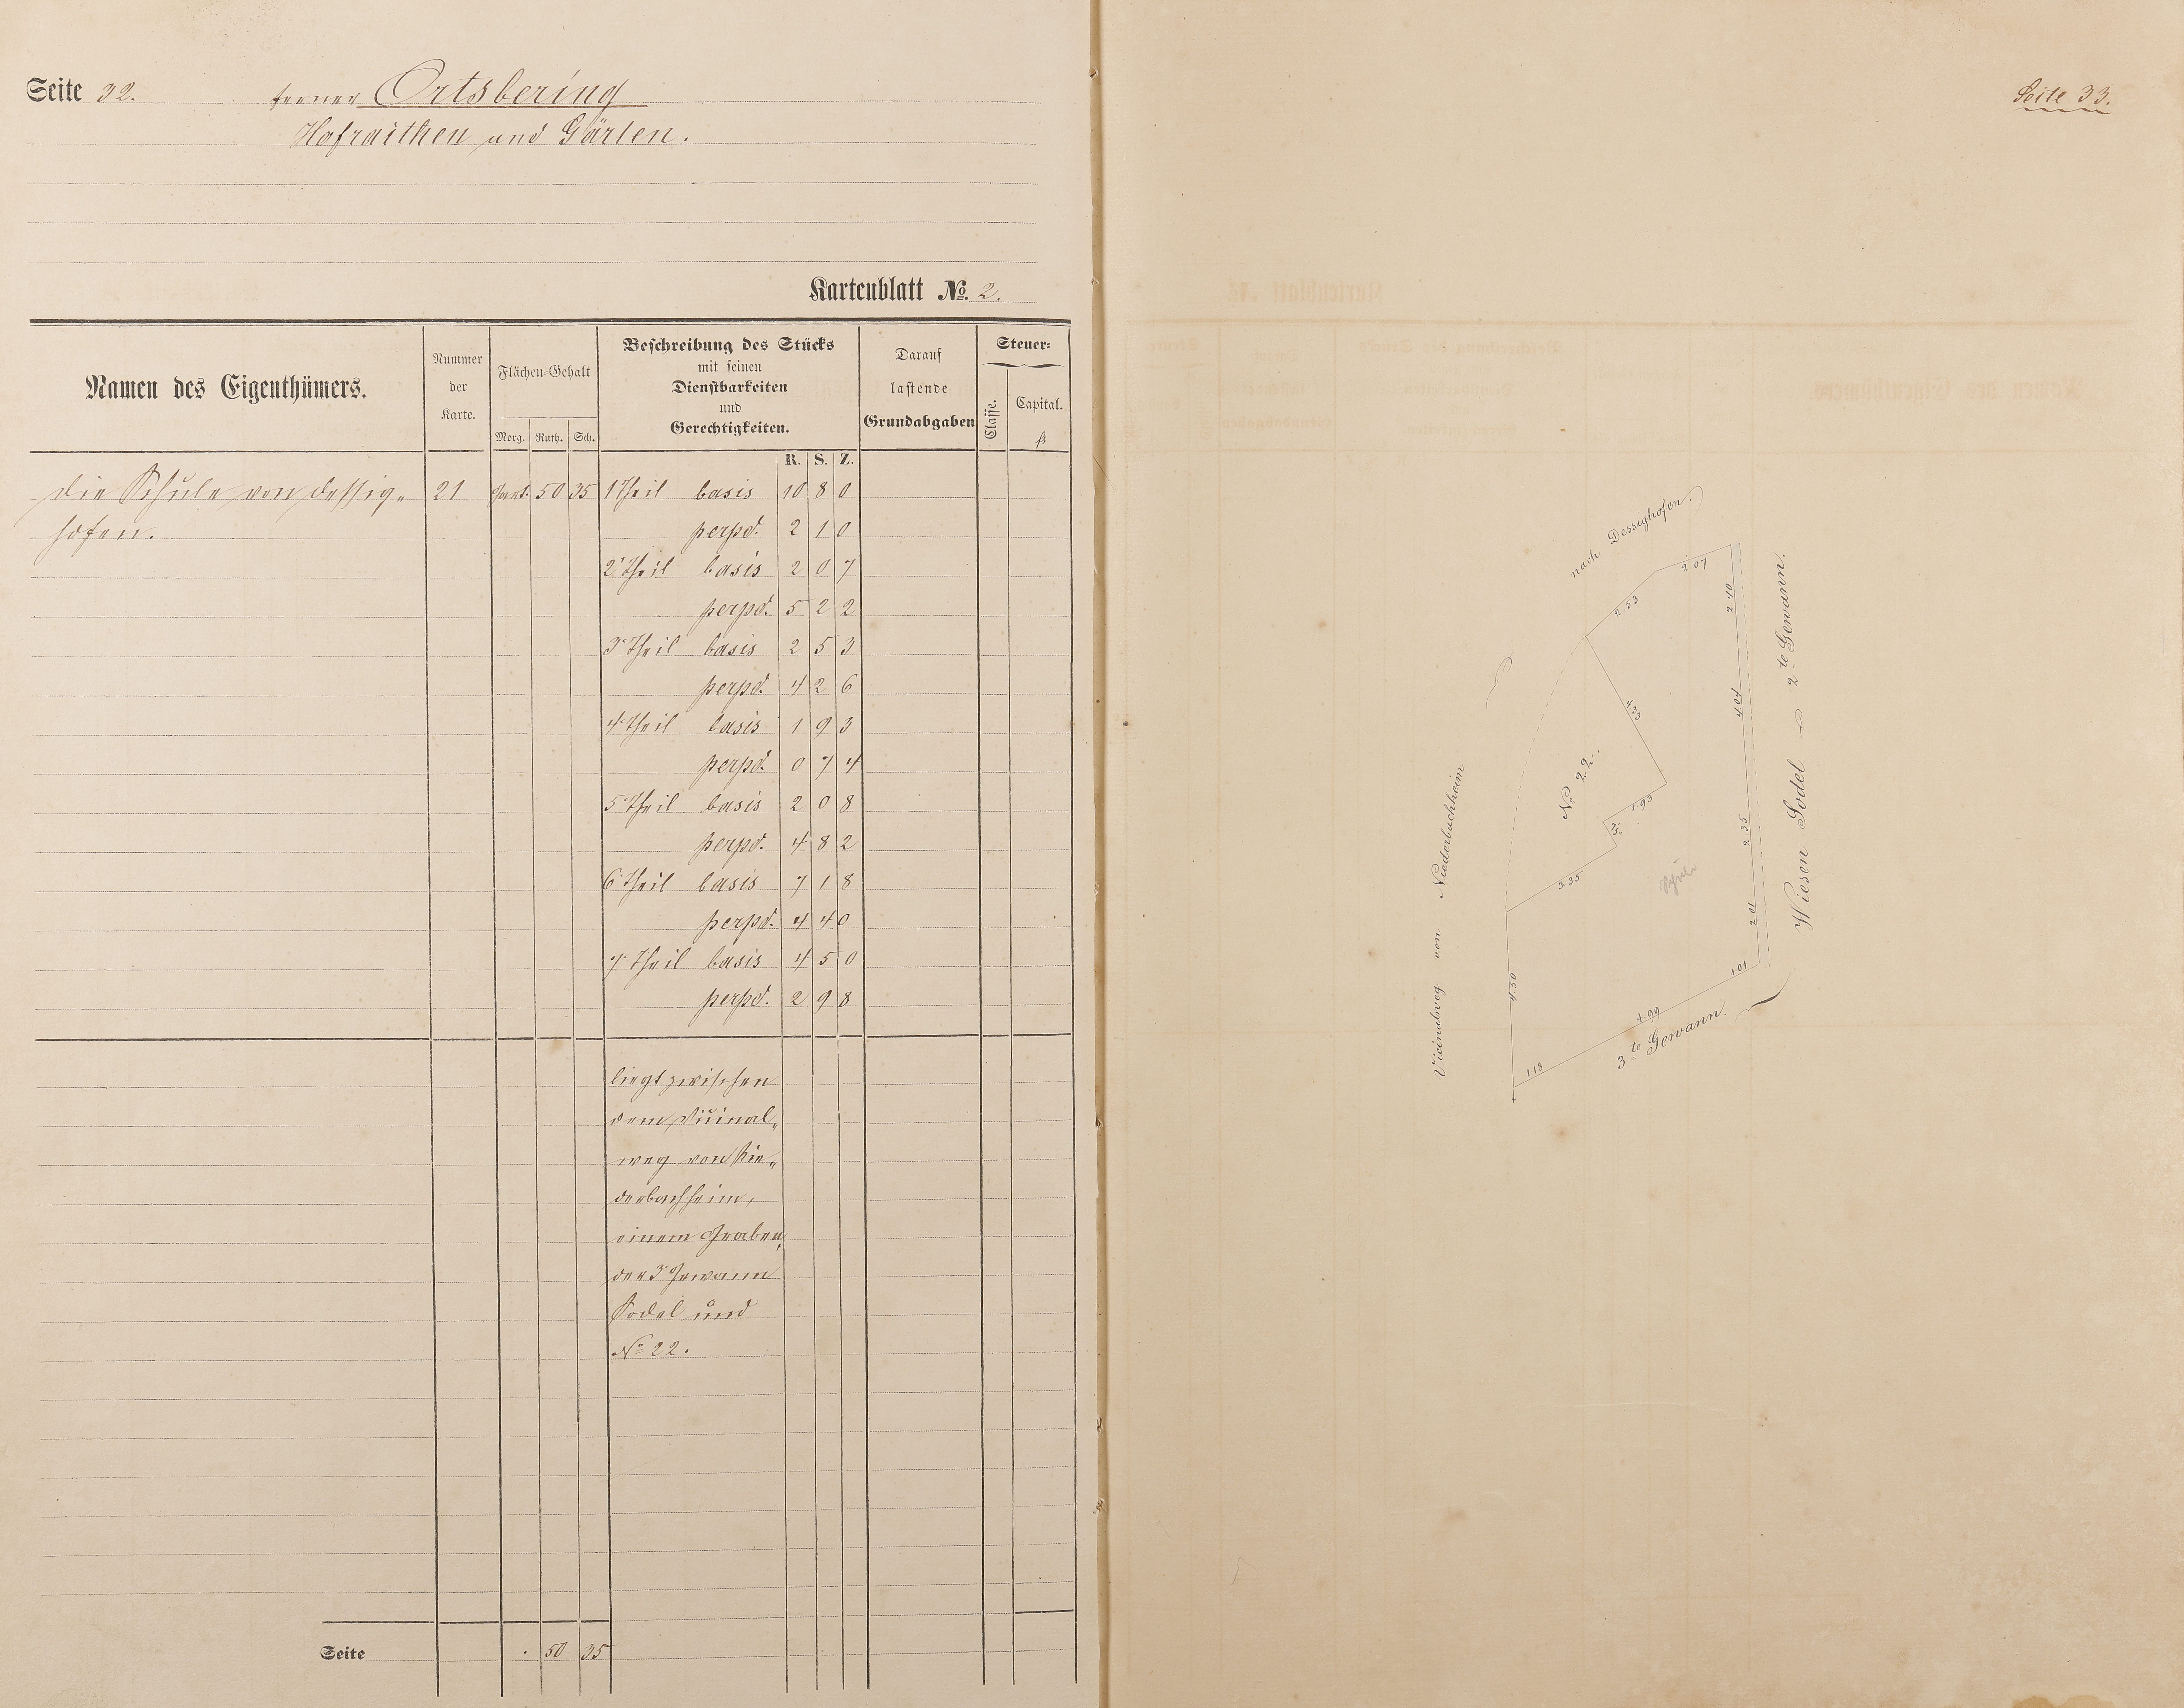 Seite 32.
ferner Ortsbering
Hofraithen und Gärten.
Kartenblatt No. 2.
Namen des Eigenthümers.
Nummer
der
Karte.
Flächen-Gehalt
Morg. Ruth. Sch.
Beschreibung des Stücks
mit seinen
Dienstbarkeiten
und
Gerechtigkeiten.
Darauf
lastende
Grundabgaben
Steuer-
Classe.
Capital.
fl
R. S. Z.
die Schule von Dessig-
hofen.
21 Gart. 50 35 1 Theil basis 10 8 0
perpd. 2 1 0
2 Theil basis 2 0 7
perpd. 5 2 2
3 Theil basis 2 5 3
perpd. 4 2 6
4 Theil basis 1 9 3
perpd. 0 7 4
5 Theil basis 2 0 8
perpd. 4 8 2
6 Theil basis 7 1 8
perpd. 4 4 0
7 Theil basis 4 5 0
perpd. 2 9 8
liegt zwischen
dem Vicinal-
weg von Nie-
derbachheim,
einem Graben,
der 3 Gewann
Sodel und
No 22.
Seite . 50 35
Seite 33.
nach Dessighofen.
2.07
2.53
2.40
4.33
4.04
No 22.
1.93
2.35
3.35
Schule
2.01
1.01
4.50
4.99
1.18
3te Gewann.
Vicinalweg von Niederbachheim
Wiesen Sodel 2te Gewann.